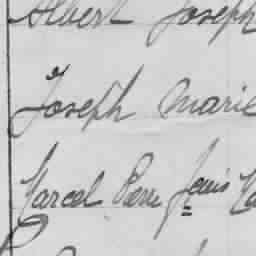 Albert Joseph
Joseph Marie
Marcel Pierre Louis